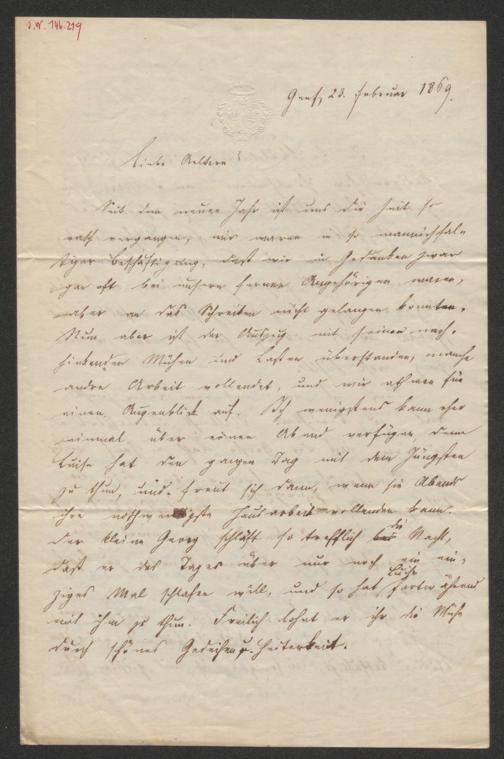 I.N. 146.219
Genf, 23. Februar 1869.
Liebe Aeltern!
Seit dem neuen Jahr ist uns die Zeit so
rasch vergangen, wir waren in so mannichfal-
tiger Beschäftigung, daß wir in Gedanken zwar
gar oft bei unsern fernen Angehörigen waren,
aber an das Schreiben nicht gelangen konnten.
Nun aber ist der Auszug mit seinen nach-
hinkenden Mühen und Lasten überstanden, manche
andre Arbeit vollendet, und wir athmen für
einen Augenblick auf. Ich wenigstens kann eher
einmal über einen Abend verfügen, denn
Luise hat den ganzen Tag mit dem Jüngsten
zu thun, und freut sich dann, wenn sie Abends
ihre nothwendigste Hausarbeit vollenden kann.
Der kleine Georg schläft so trefflich die Nacht,
daß er des Tages über nur noch ein ein-
ziges Mal schlafen will, und so hat Luise fortwährend
mit ihm zu thun. Freilich lohnt er ihr die Mühe
durch schönes Gedeihen u. Heiterkeit.